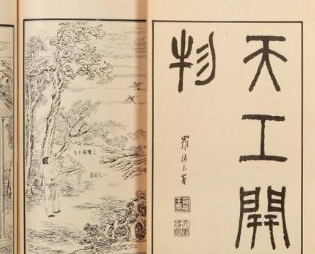 天工開
物
羅振玉署